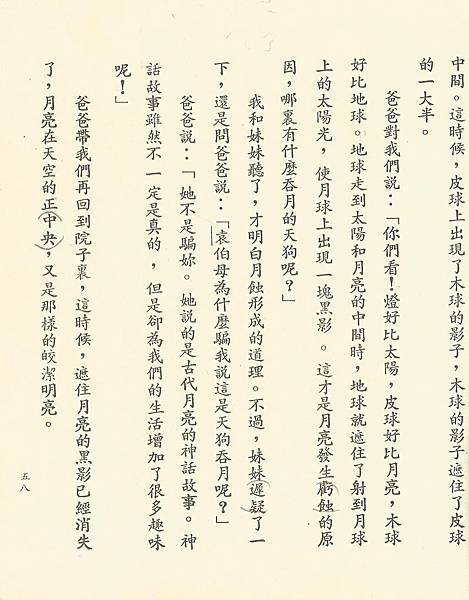 中間。這時候，皮球上出現了木球的影子，木球的影子遮住了皮球
的一大半。
爸爸對我們說：「你們看！燈好比太陽，皮球好比月亮，木球
好比地球。地球走到太陽和月亮的中間時，地球就遮住了射到月球
上的太陽光，使月球上出現一塊黑影。這才是月亮發生虧蝕的原
因，哪裏有什麼吞月的天狗呢？」
我和妹妹聽了，才明白月蝕形成的道理。不過，妹妹遲疑了一
下，還是問爸爸說：「袁伯母為什麼騙我說這是天狗吞月呢？」
爸爸說：「她不是騙妳。她說的是古代月亮的神話故事。神
話故事雖然不一定是真的，但是卻為我們的生活增加了很多趣味
呢！」
爸爸帶我們再回到院子裏，這時候，遮住月亮的黑影已經消失
了，月亮在天空的正中央，又是那樣的皎潔明亮。
五八